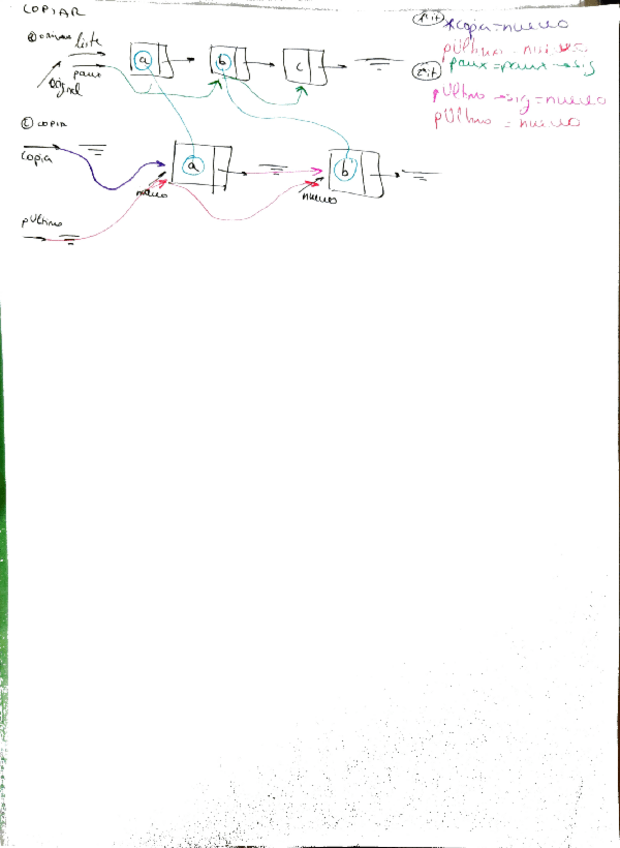 COPIAR
1ª it *copia = nuevo
pUltimo = nuevo
paux = paux → sig
2ª it
pUltimo → sig = nuevo
pUltimo = nuevo
lista
paux
a
b
c
copia
copia
a
b
nuevo
nuevo
pUltimo